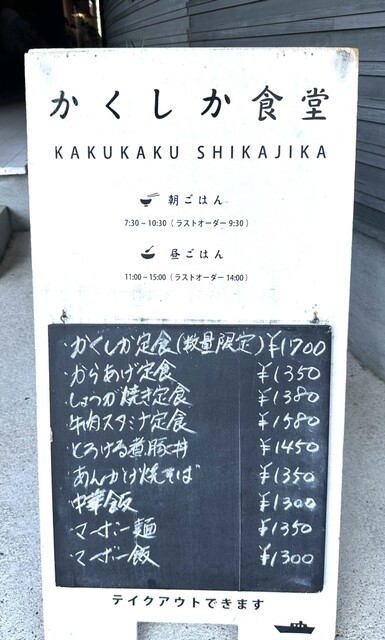 かくしか食堂
KAKUKAKU SHIKAJIKA
朝ごはん
7:30～10:30（ラストオーダー 9:30）
昼ごはん
11:00～15:00（ラストオーダー 14:00）
・かくしか定食(数量限定) ¥1700
・からあげ定食 ¥1350
・しょうが焼き定食 ¥1380
・牛肉スタミナ定食 ¥1580
・とろける煮豚丼 ¥1450
・あんかけ焼そば ¥1350
・中華飯 ¥1300
・マーボー麺 ¥1350
・マーボー飯 ¥1300
テイクアウトできます